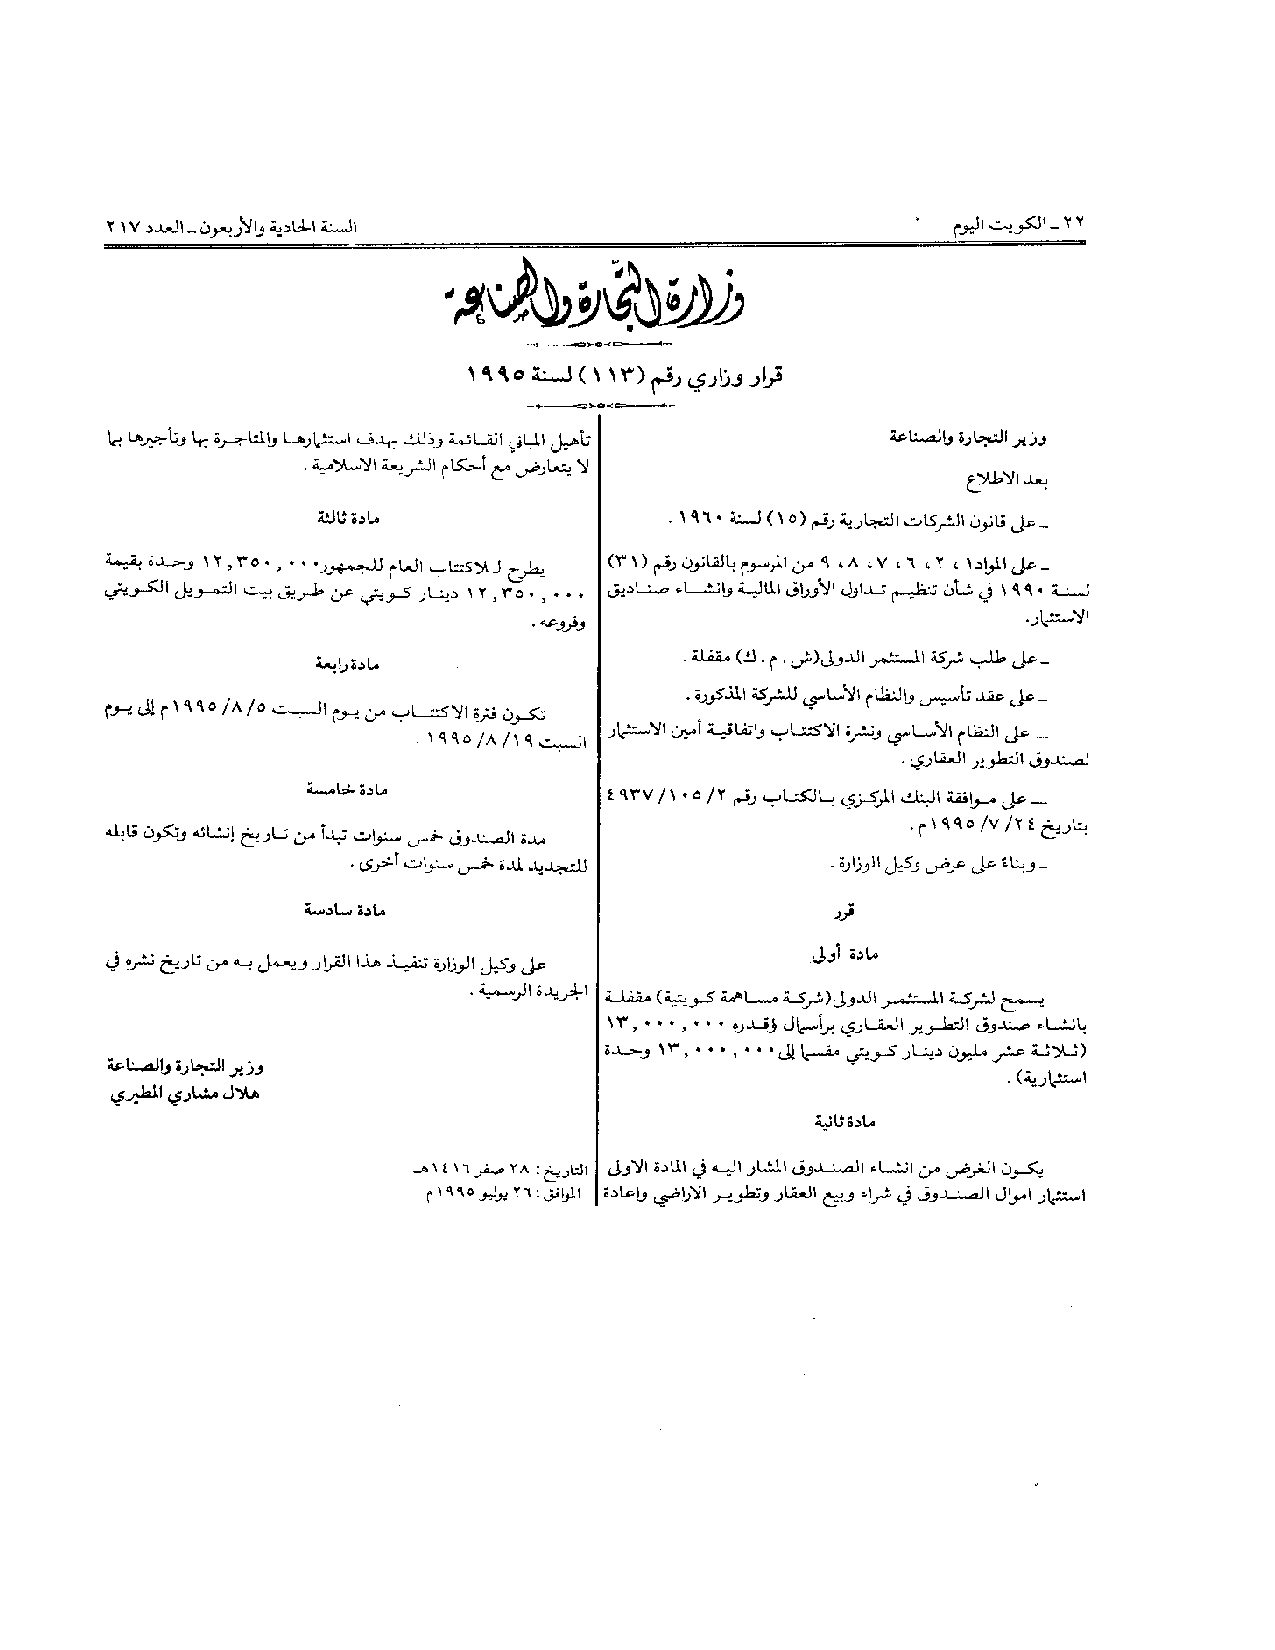 ٢٢ - الكويت اليوم
السنة الحادية والأربعون - العدد ٢١٧
وزارة التجارة والصناعة
قرار وزاري رقم (١١٣) لسنة ١٩٩٥
وزير التجارة والصناعة
بعد الاطلاع
- على قانون الشركات التجارية رقم (١٥) لسنة ١٩٦٠ .
- على المواد ١ ، ٢ ، ٦ ، ٧ ، ٨ ، ٩ من المرسوم بالقانون رقم (٣١)
لسنة ١٩٩٠ في شأن تنظيم تداول الأوراق المالية وانشاء صناديق
الاستثمار.
- على طلب شركة المستثمر الدولي (ش . م . ك) مقفلة .
- على عقد تأسيس والنظام الأساسي للشركة المذكورة .
- على النظام الأساسي ونشرة الاكتتاب واتفاقية أمين الاستثمار
لصندوق التطوير العقاري .
- على موافقة البنك المركزي بالكتاب رقم ٢/ ١٠٥/ ٤٩٣٧
بتاريخ ٢٤/ ٧/ ١٩٩٥م .
- وبناء على عرض وكيل الوزارة .
قرر
مادة أولى
يسمح لشركة المستثمر الدولي (شركة مساهمة كويتية) مقفلة
بانشاء صندوق التطوير العقاري برأسمال وقدره ١٣,٠٠٠,٠٠٠
(ثلاثة عشر مليون دينار كويتي مقسما إلى ١٣,٠٠٠,٠٠٠ وحدة
استثمارية) .
مادة ثانية
يكون الغرض من انشاء الصندوق المشار اليه في المادة الاولى
استثمار اموال الصندوق في شراء وبيع العقار وتطوير الاراضي واعادة
تأهيل المباني القائمة وذلك بهدف استثمارها والمتاجرة بها وتأجيرها بما
لا يتعارض مع أحكام الشريعة الاسلامية .
مادة ثالثة
يطرح للاكتتاب العام للجمهور ١٢,٣٥٠,٠٠٠ وحدة بقيمة
١٢,٣٥٠,٠٠٠ دينار كويتي عن طريق بيت التمويل الكويتي
وفروعه .
مادة رابعة
تكون فترة الاكتتاب من يوم السبت ٥/ ٨/ ١٩٩٥م إلى يوم
السبت ١٩/ ٨/ ١٩٩٥ .
مادة خامسة
مدة الصندوق خمس سنوات تبدأ من تاريخ إنشائه وتكون قابله
للتجديد لمدة خمس سنوات أخرى .
مادة سادسة
على وكيل الوزارة تنفيذ هذا القرار ويعمل به من تاريخ نشره في
الجريدة الرسمية .
وزير التجارة والصناعة
هلال مشاري المطيري
التاريخ : ٢٨ صفر ١٤١٦هـ
الموافق : ٢٦ يوليو ١٩٩٥م